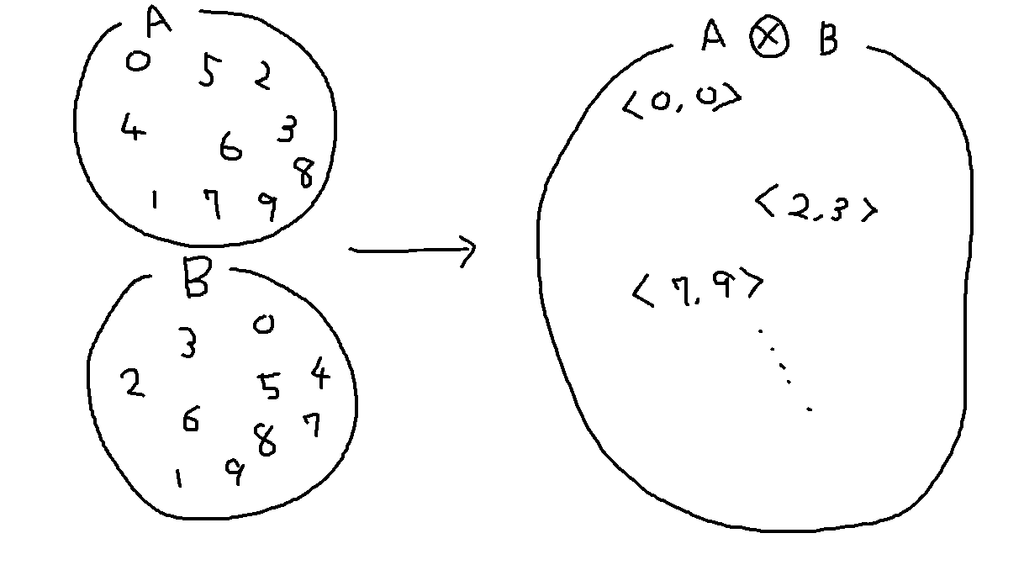 A
0 5 2
4 6 3
8
1 7 9
B
3 0
2 5 4
6 8 7
1 9
A ⊗ B
<0,0>
<2,3>
<7,9>